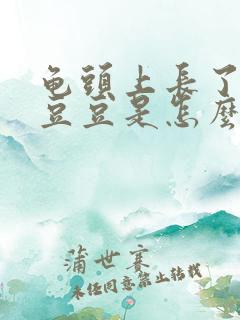 龟頭上長了
豆豆是怎麽
蒲世赛
未经同意禁止转载